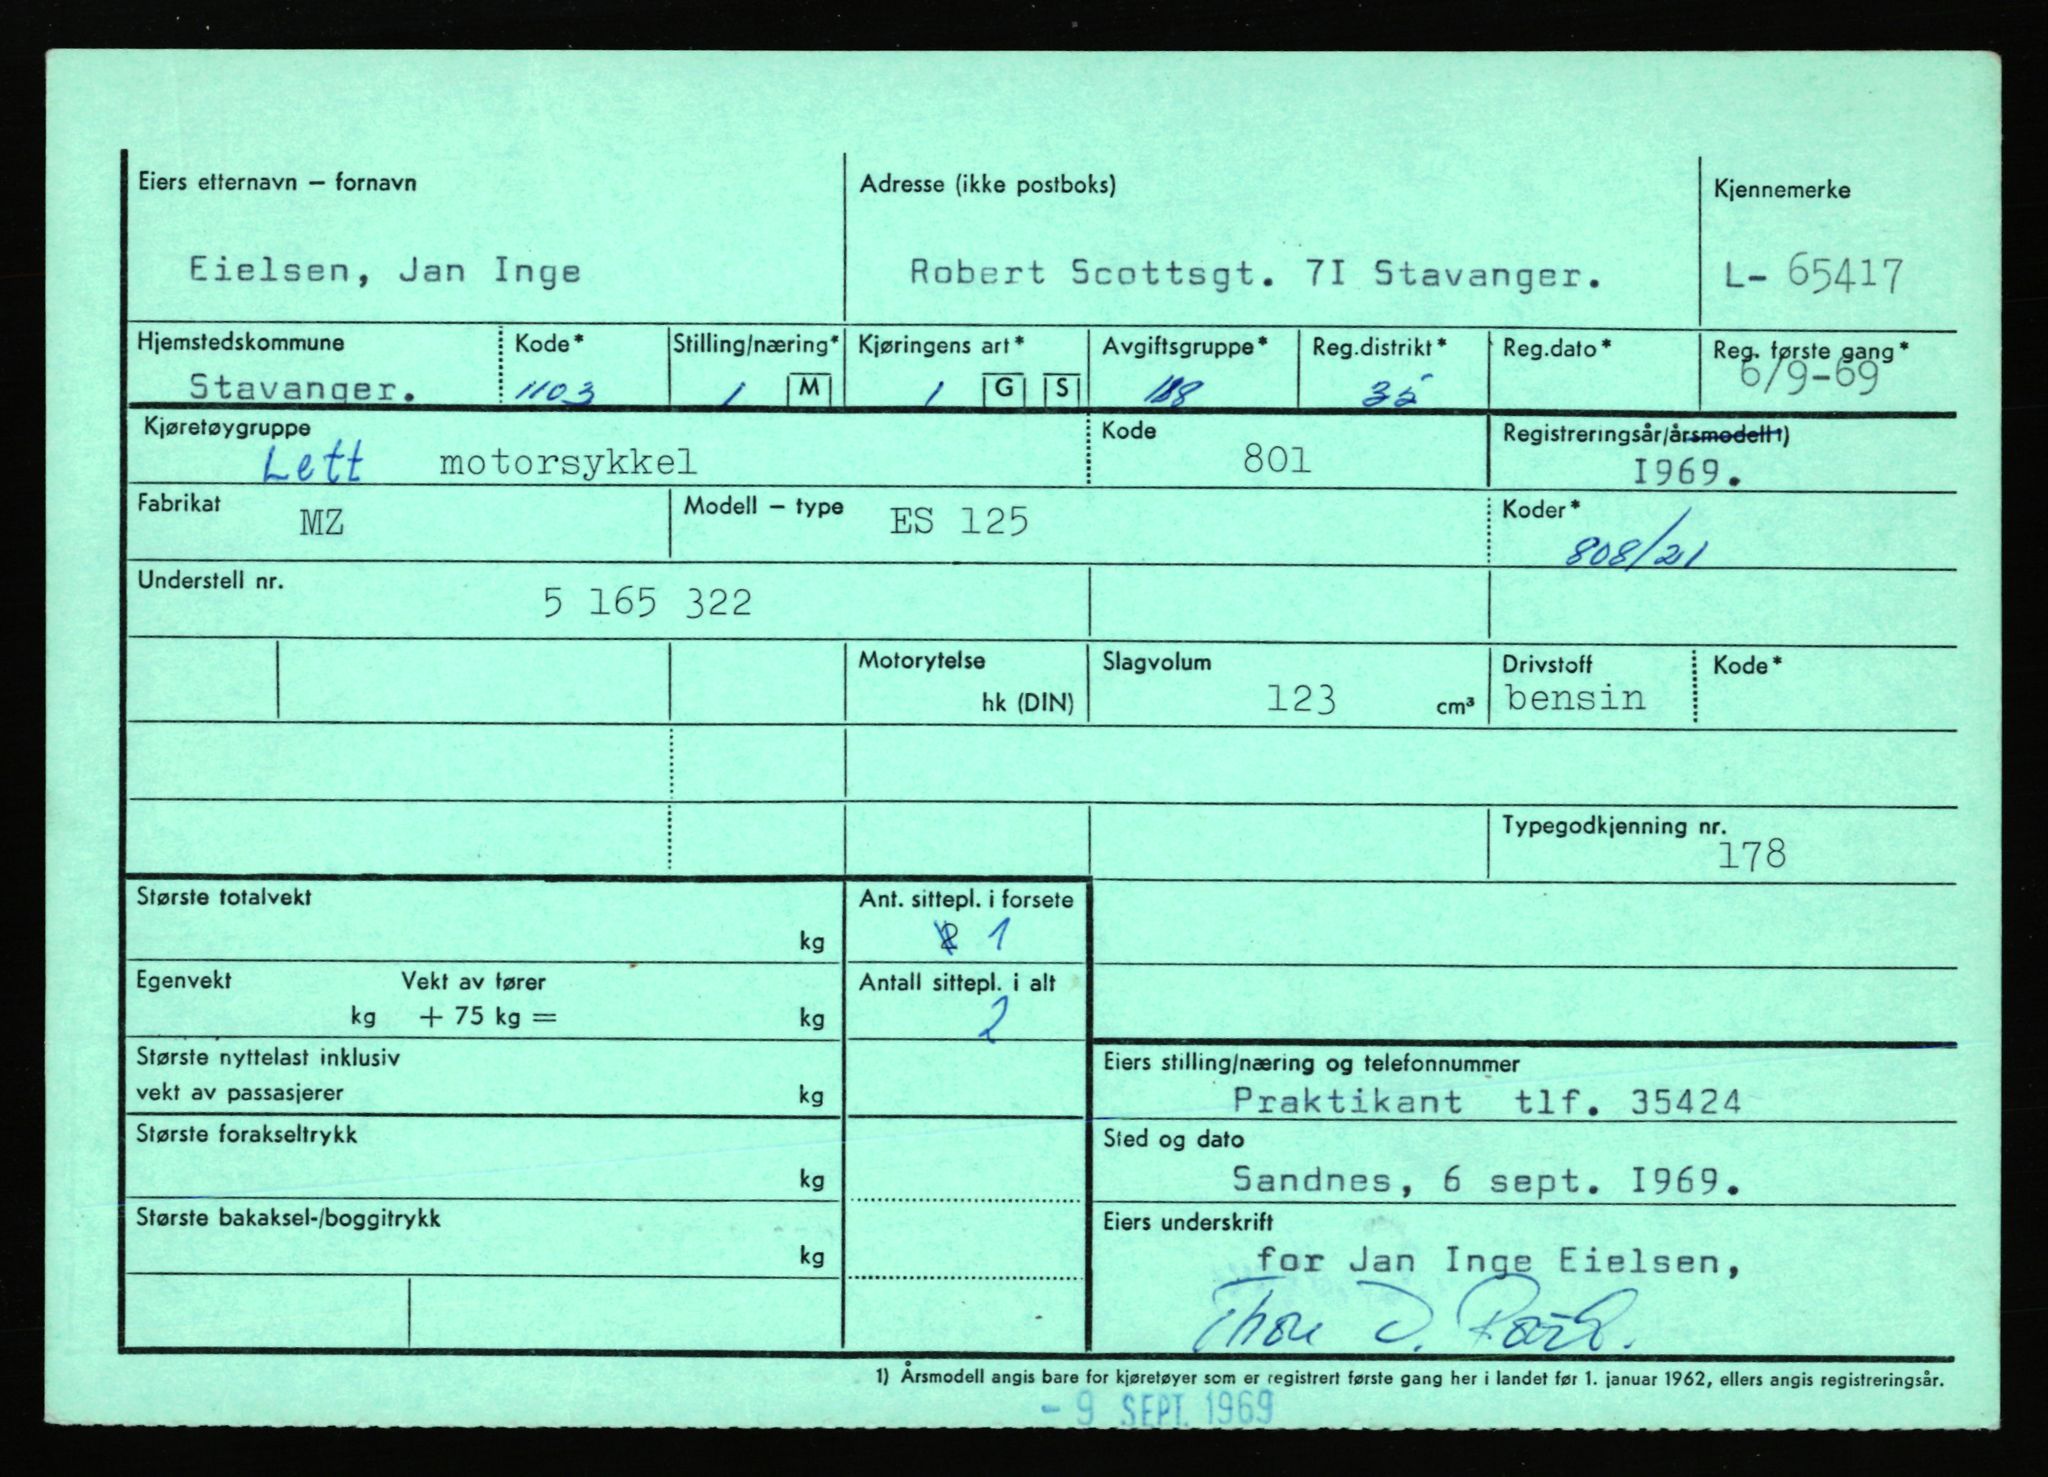 Eiers etternavn – fornavn
Adresse (ikke postboks)
Kjennemerke
Eielsen, Jan Inge
Robert Scottsgt. 7I Stavanger.
L- 65417
Hjemstedskommune
Kode*
Stilling/næring*
Kjøringens art*
Avgiftsgruppe*
Reg.distrikt*
Reg.dato*
Reg. første gang*
Stavanger.
1103
1 M
1 G S
35
6/9-69
Kjøretøygruppe
Kode
Registreringsår/årsmodell1)
Lett motorsykkel
801
I969.
Fabrikat
Modell – type
Koder*
MZ
ES 125
808/21
Understell nr.
5 165 322
Motorytelse
Slagvolum
Drivstoff
Kode*
hk (DIN)
123 cm³
bensin
Typegodkjenning nr.
178
Største totalvekt
kg
Ant. sittepl. i forsete
2 1
Egenvekt
Vekt av fører
kg + 75 kg =
kg
Antall sittepl. i alt
2
Største nyttelast inklusiv
vekt av passasjerer
kg
Eiers stilling/næring og telefonnummer
Praktikant tlf. 35424
Største forakseltrykk
kg
Sted og dato
Sandnes, 6 sept. I969.
Største bakaksel-/boggitrykk
kg
Eiers underskrift
for Jan Inge Eielsen,
Thor D.
1) Årsmodell angis bare for kjøretøyer som er registrert første gang her i landet før 1. januar 1962, ellers angis registreringsår.
- 9 SEPT. 1969